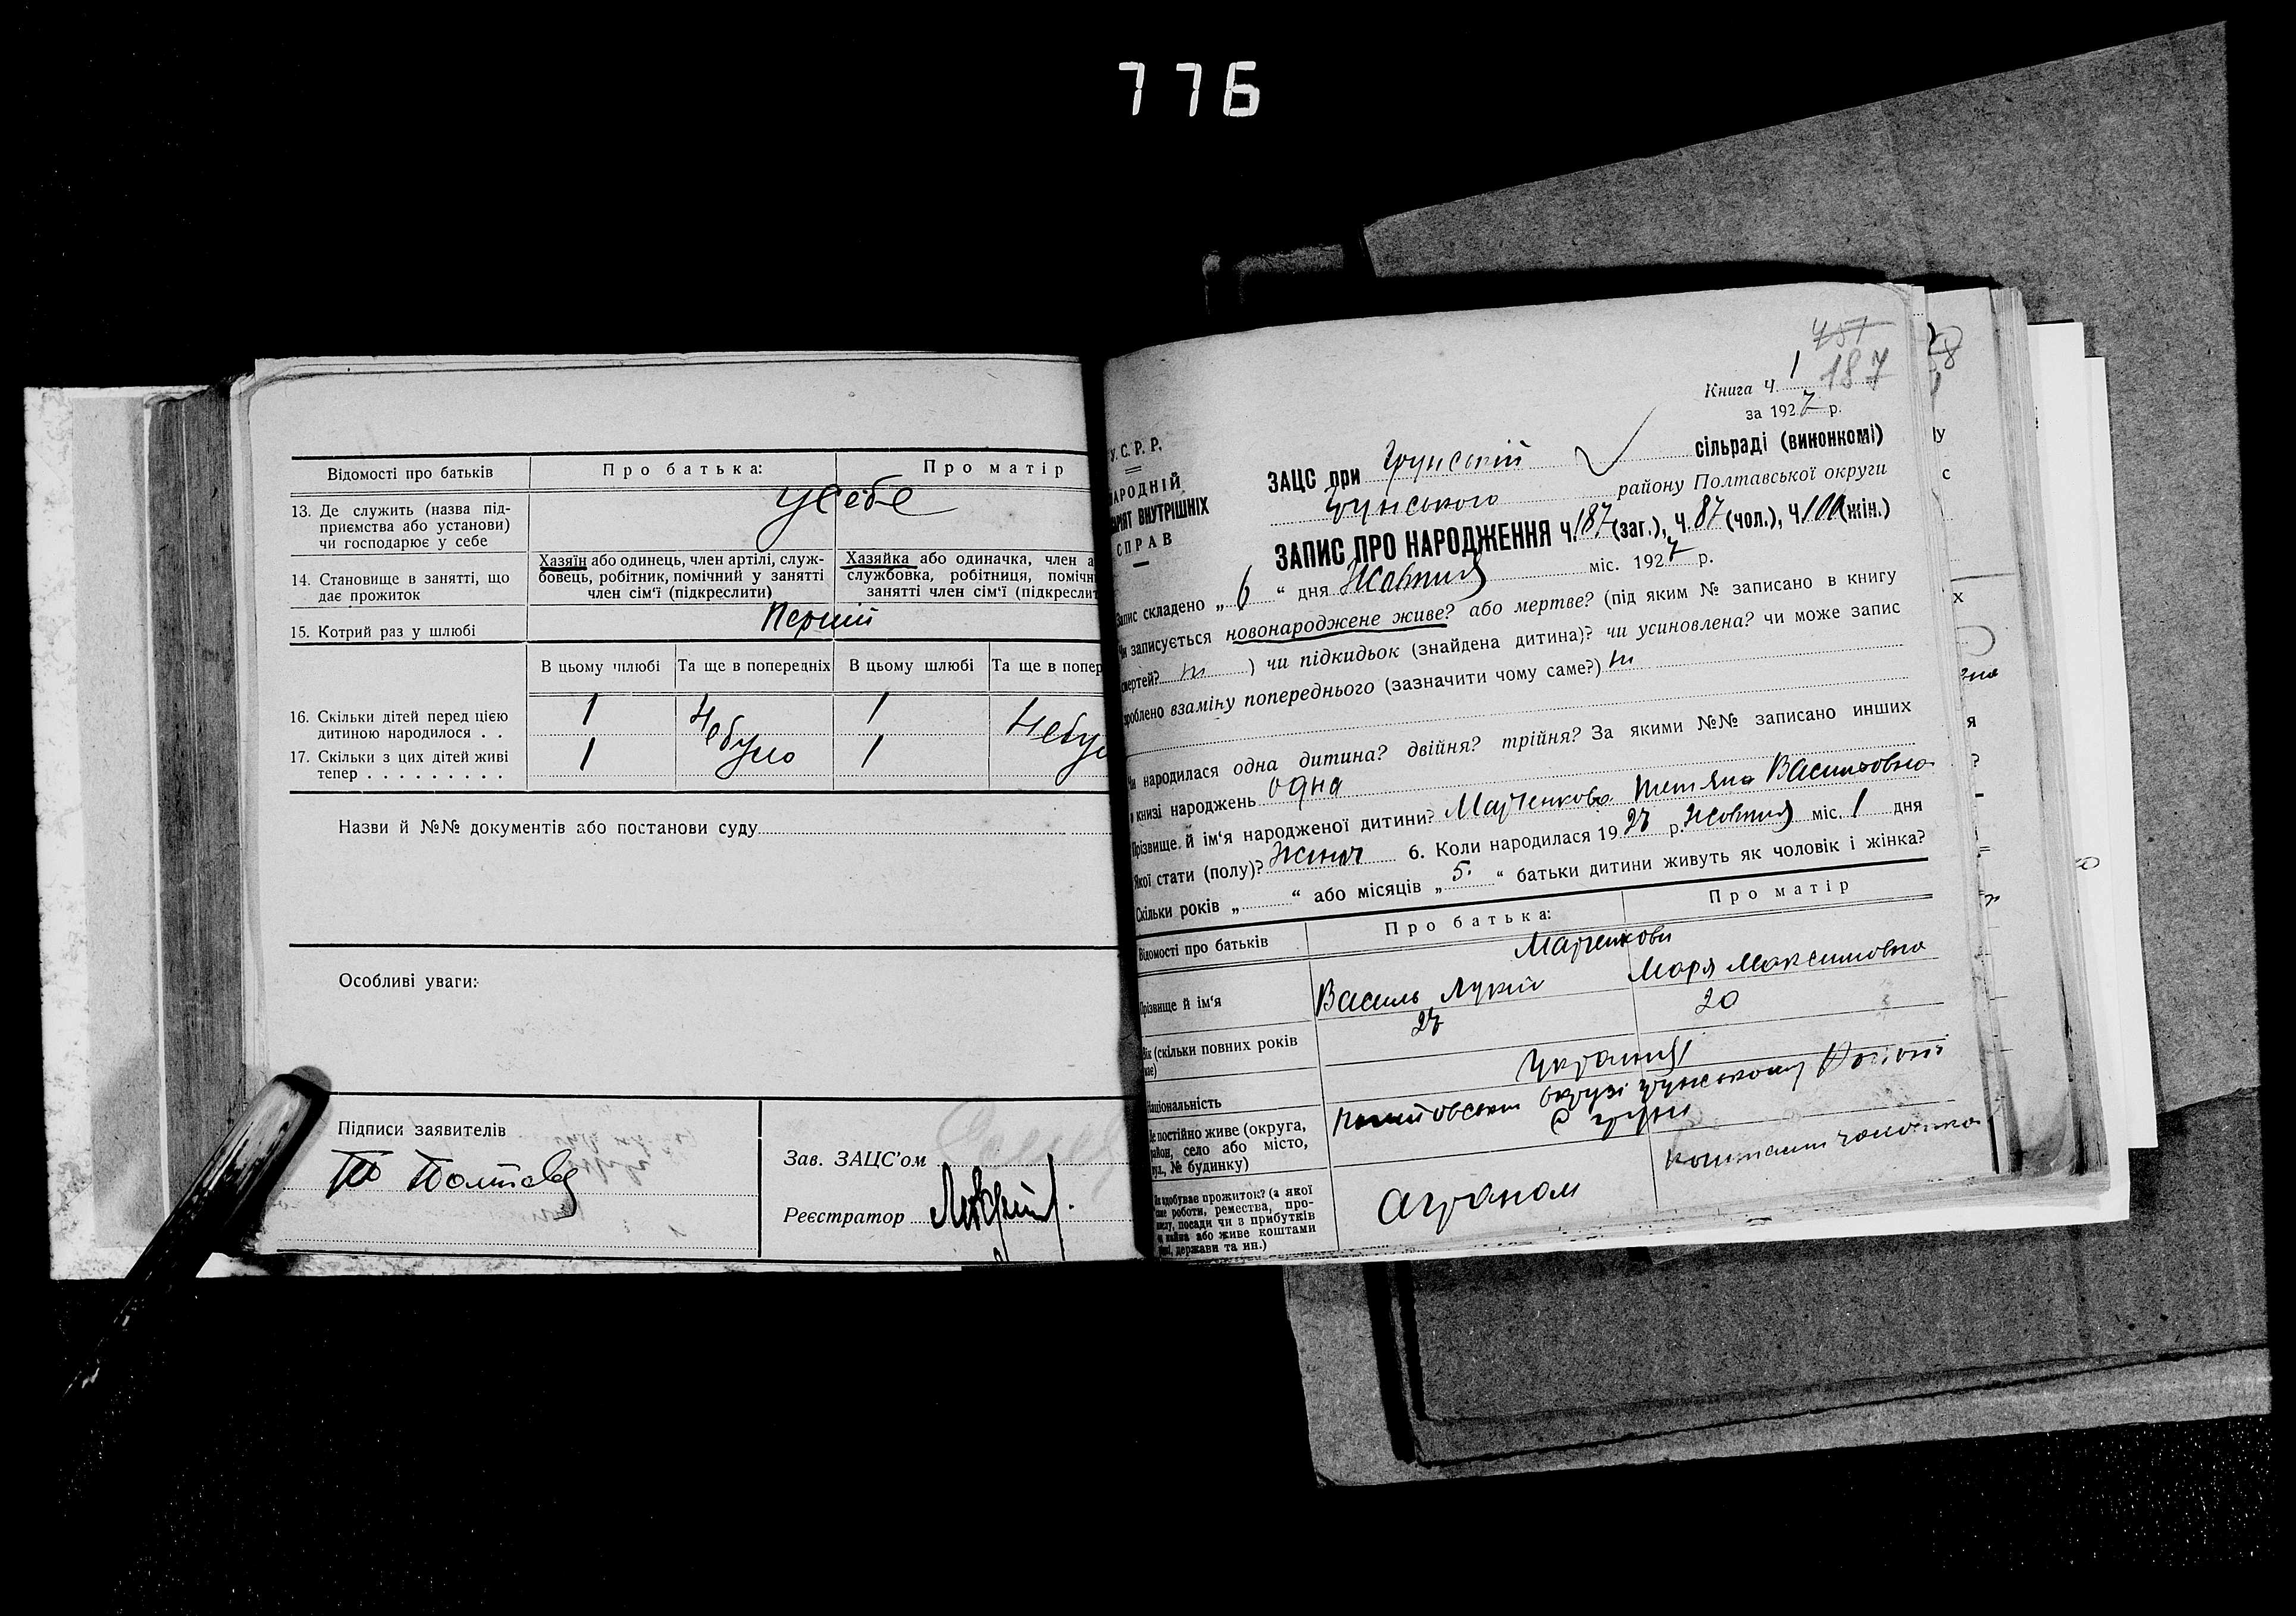 776
Відомості про батьків
Про батька:
Про матір
13. Де служить (назва під-
приємства або установи)
чи господарює у себе
у себе
14. Становище в занятті, що
дає прожиток
Хазяїн або одинець, член артілі, служ-
бовець, робітник, помічний у занятті
член сім'ї (підкреслити)
Хазяйка або одиначка, член а
службовка, робітниця, помічн
занятті член сім'ї (підкреслит
15. Котрий раз у шлюбі
Перший
В цьому шлюбі
Та ще в попередніх
В цьому шлюбі
Та ще в попер
16. Скільки дітей перед цією
дитиною народилося . .
1
1
17. Скільки з цих дітей живі
тепер . . . . . . . . .
1
Небуло
1
Небул
Назви й №№ документів або постанови суду
Особливі уваги:
Підписи заявителів
Зав. ЗАЦС'ом
Реєстратор
457
187
Книга ч. 1
за 1927 р.
У.С.Р.Р.
НАРОДНІЙ
ВНУТРІШНІХ
СПРАВ
ЗАЦС при Грунській сільраді (виконкомі)
Грунського району Полтавської округи
ЗАПИС ПРО НАРОДЖЕННЯ ч. 187 (заг.), ч. 87 (чол.), ч. 100 (жін.)
Запис складено „ 6 “ дня Жовтня міс. 1927 р.
Чи записується новонароджене живе? або мертве? (під яким № записано в книгу
смертей? ні ) чи підкидьок (знайдена дитина)? чи усиновлена? чи може запис
зроблено взаміну попереднього (зазначити чому саме?) ні
Чи народилася одна дитина? двійня? трійня? За якими №№ записано инших
в книзі народжень одна
Прізвище й ім'я народженої дитини? Марченкова Тетяна Васильовна
Якої стати (полу)? Жіноч 6. Коли народилася 1927 р. Жовтня міс. 1 дня
Скільки років „ “ або місяців „ 5. “ батьки дитини живуть як чоловік і жінка?
Відомості про батьків
Про батька:
Про матір
Марченкови
Прізвище й ім'я
Василь Лукич
Маря Максимовна
Вік (скільки повних років
має)
27
20
Національність
Українці
Де постійно живе (округа,
район, село або місто,
вул., № будинку)
Полтовськи округі грунському Районі
с груні
Як здобуває прожиток? (з якої
саме роботи, ремества, про-
мислу, посади чи з прибутків
з майна або живе коштами
рідні, держави та ин.)
Аграном
коштами чоловіка